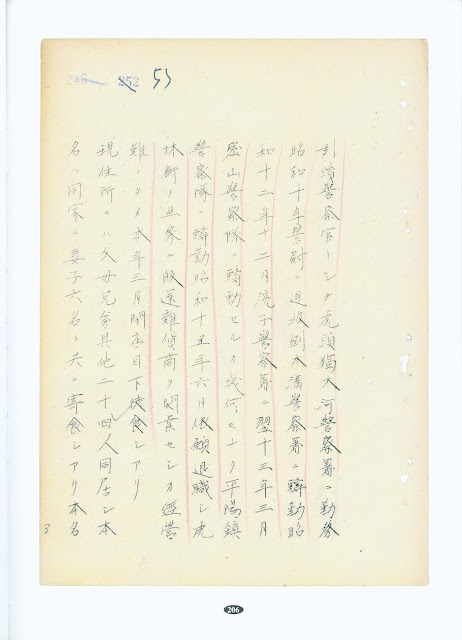 246 852 53
引續警察官トシテ虎頭獨木河警察署ニ勤務
昭和十年警尉ニ進級倒木溝警察署ニ轉勤昭
和十二年十二月 警察署ニ翌十三年三月
密山警察隊ニ轉勤セルカ幾何モナク平陽鎮
警察隊ニ轉勤昭和十五年六月依願退職シ虎
林街ノ ニ飯運雜 商ヲ開業セシカ經營
難ノタメ本年三月閉店目下徒食シアリ
現住所ニハ父母兄弟其他二十四人同居シ本
名ハ同家ニ妻子六名ト共ニ寄食シアリ本名
3
206